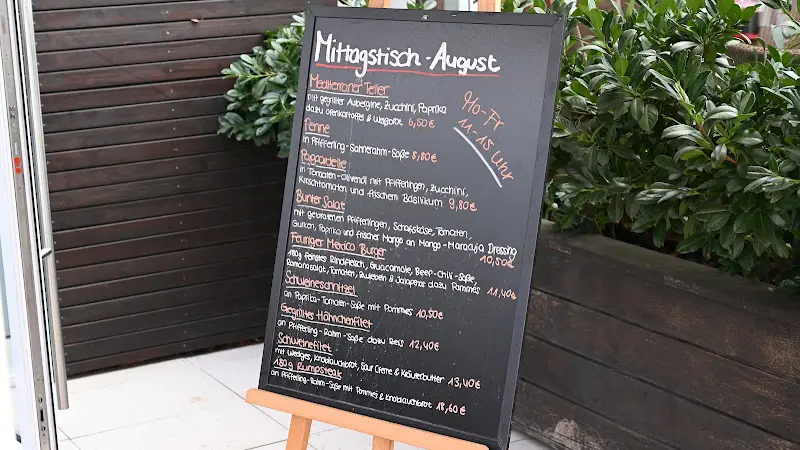 Mittagstisch - August
Mediterraner Teller
mit gegrillter Aubergine, Zucchini, Paprika
dazu Ofenkartoffel & Weißbrot 6,50€
Mo-Fr
11-15 Uhr
Penne
in Pfifferling-Sahnerahm-Soße 8,80€
Pappardelle
in Tomaten-Olivenöl mit Pfifferlingen, Zucchini,
Kirschtomaten und frischem Basilikum 9,80€
Bunter Salat
mit gebratenen Pfifferlingen, Schafskäse, Tomaten,
Gurken, Paprika und frischer Mango an Mango-Maracuja Dressing
10,50€
Feuriger Mexico Burger
180g feinstes Rindfleisch, Guacamole, Beef-Chili-Soße,
Romanasalat, Tomaten, Zwiebeln & Jalapeños dazu Pommes 11,40€
Schweineschnitzel
an Paprika-Tomaten-Soße mit Pommes 10,50€
Gegrilltes Hähnchenfilet
an Pfifferling-Rahm-Soße dazu Reis 12,40€
Schweinefilet
mit Wedges, Knoblauchbrot, Sour Creme & Kräuterbutter 13,40€
180g Rumpsteak
an Pfifferling-Rahm-Soße mit Pommes & Knoblauchbrot 18,60€